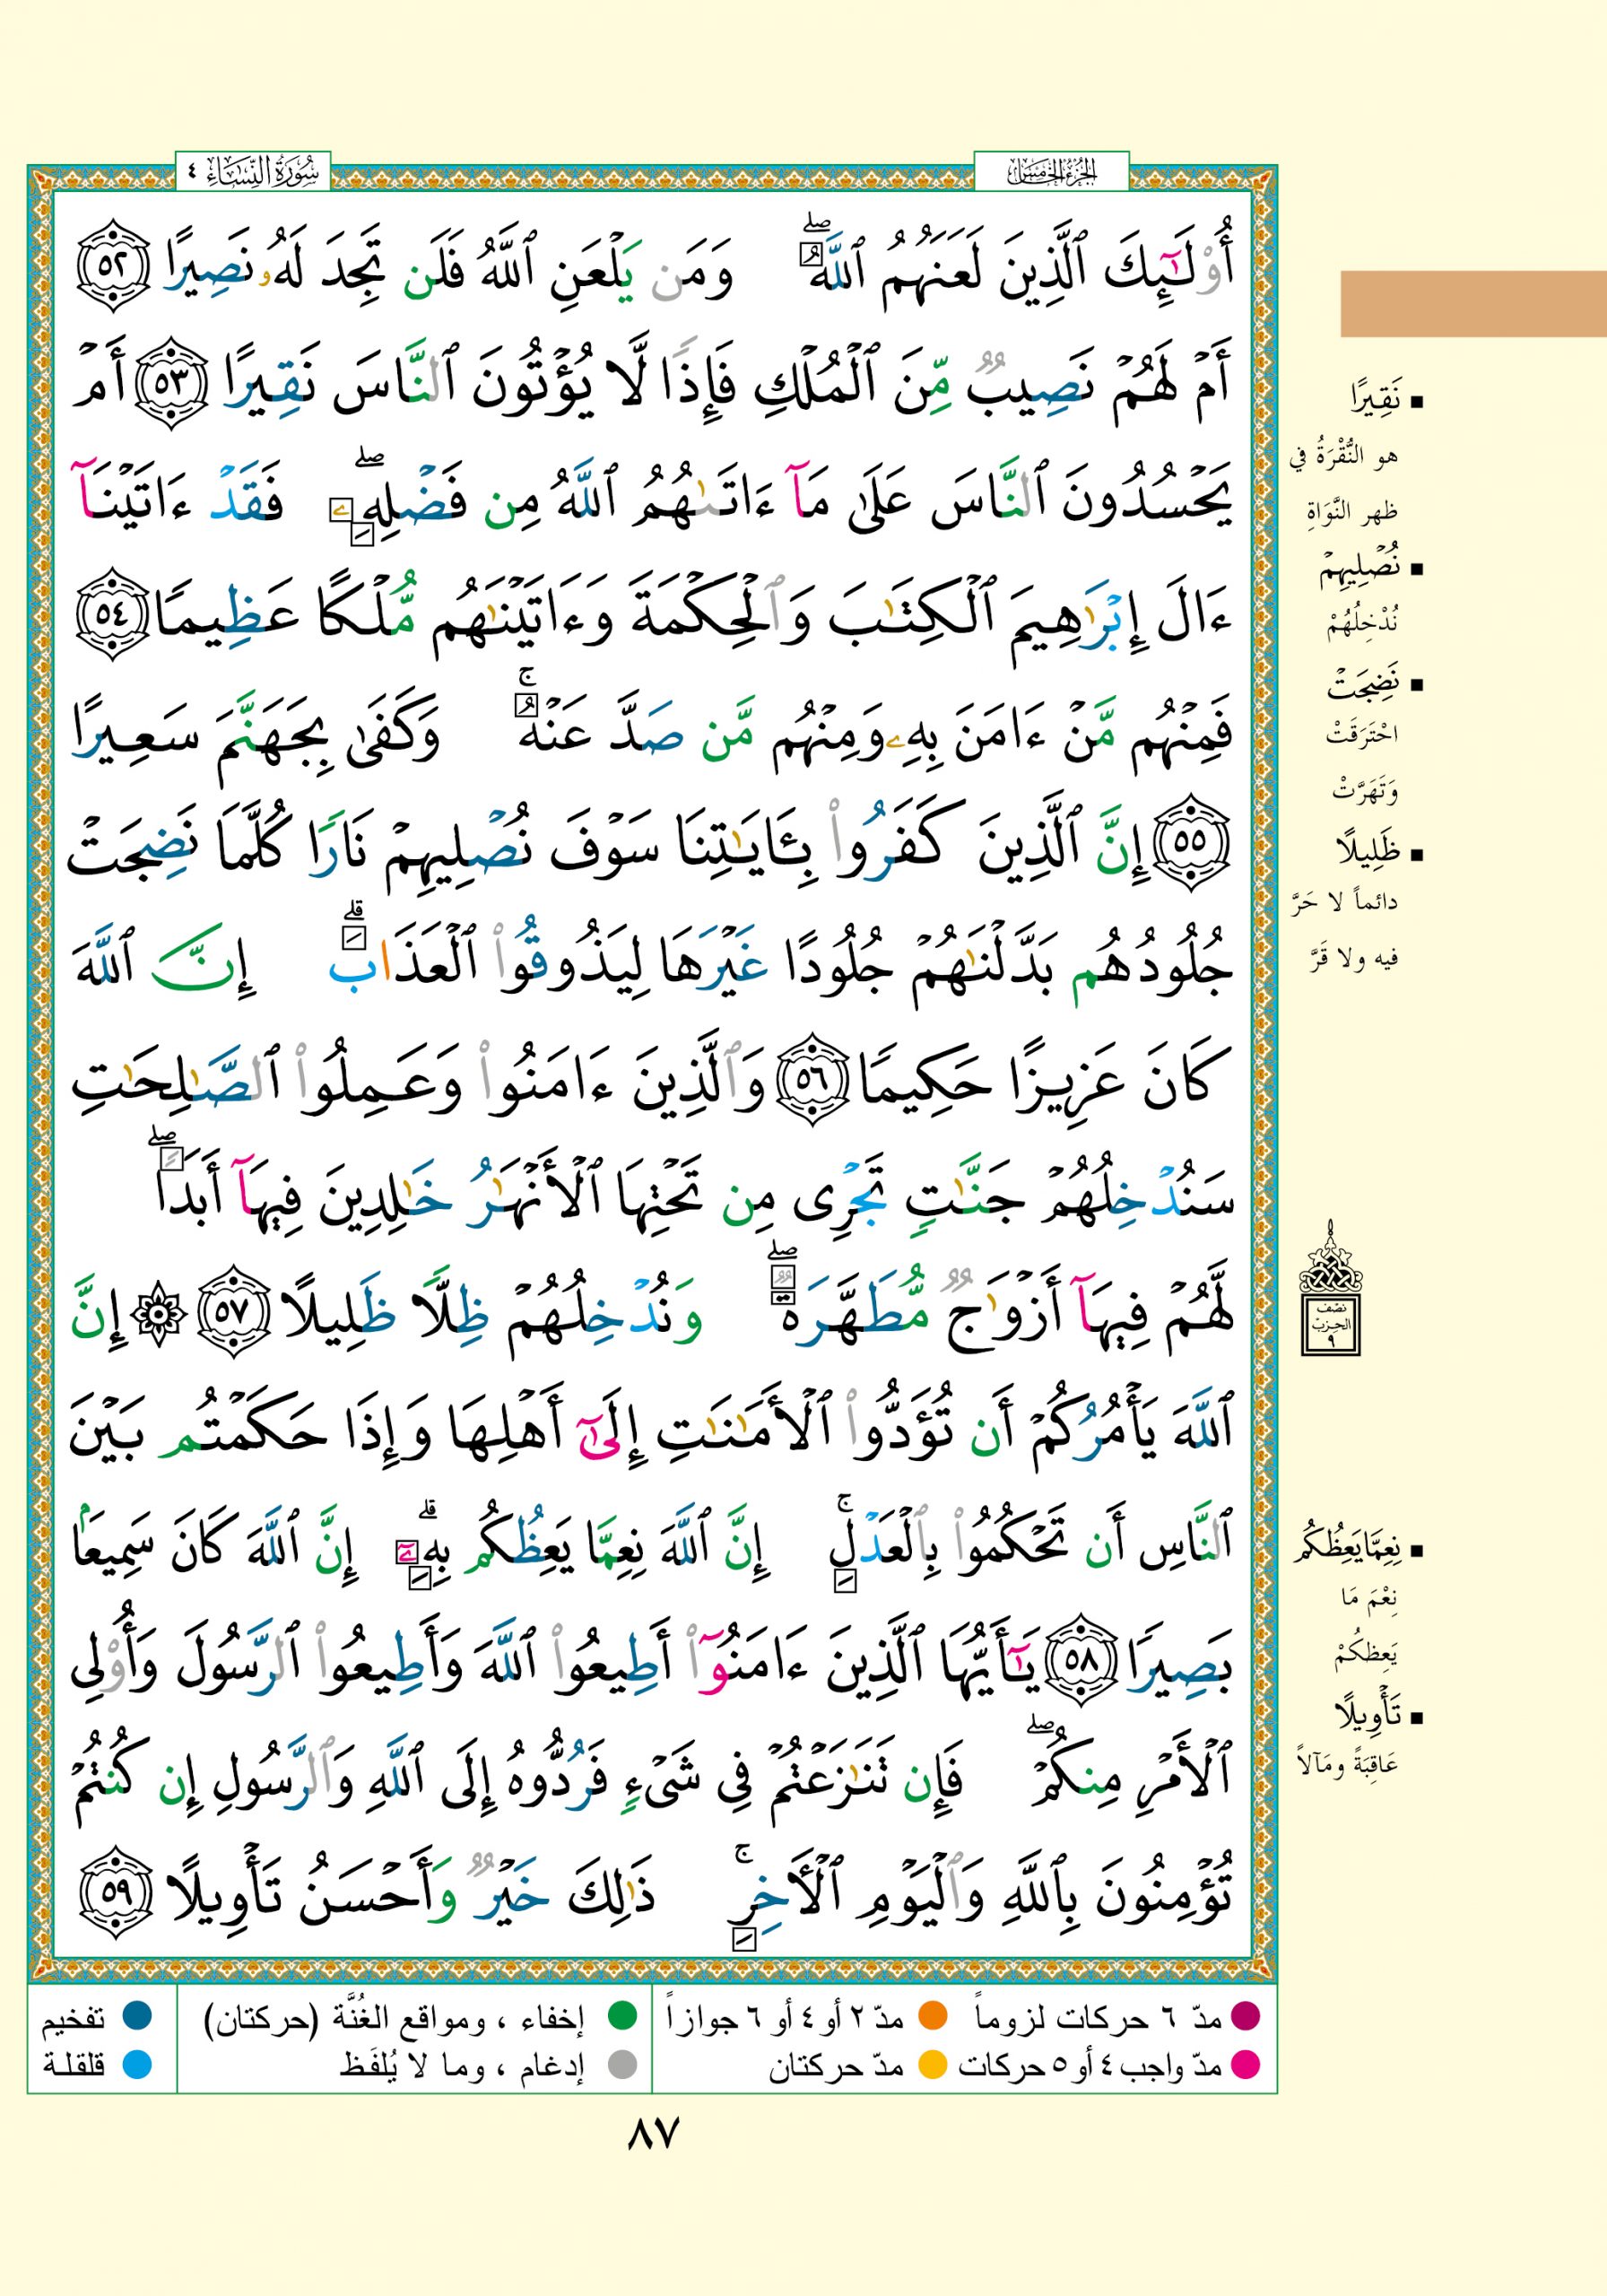 الجزء الخامس
سورة النساء ٤
أُوْلَٰٓئِكَ ٱلَّذِينَ لَعَنَهُمُ ٱللَّهُۖ وَمَن يَلۡعَنِ ٱللَّهُ فَلَن تَجِدَ لَهُۥ نَصِيرًا ٥٢
أَمۡ لَهُمۡ نَصِيبٞ مِّنَ ٱلۡمُلۡكِ فَإِذٗا لَّا يُؤۡتُونَ ٱلنَّاسَ نَقِيرًا ٥٣ أَمۡ
يَحۡسُدُونَ ٱلنَّاسَ عَلَىٰ مَآ ءَاتَىٰهُمُ ٱللَّهُ مِن فَضۡلِهِۦۖ فَقَدۡ ءَاتَيۡنَآ
ءَالَ إِبۡرَٰهِيمَ ٱلۡكِتَٰبَ وَٱلۡحِكۡمَةَ وَءَاتَيۡنَٰهُم مُّلۡكًا عَظِيمًا ٥٤
فَمِنۡهُم مَّنۡ ءَامَنَ بِهِۦ وَمِنۡهُم مَّن صَدَّ عَنۡهُۚ وَكَفَىٰ بِجَهَنَّمَ سَعِيرًا
٥٥ إِنَّ ٱلَّذِينَ كَفَرُواْ بِـَٔايَٰتِنَا سَوۡفَ نُصۡلِيهِمۡ نَارٗا كُلَّمَا نَضِجَتۡ
جُلُودُهُم بَدَّلۡنَٰهُمۡ جُلُودًا غَيۡرَهَا لِيَذُوقُواْ ٱلۡعَذَابَۗ إِنَّ ٱللَّهَ
كَانَ عَزِيزًا حَكِيمٗا ٥٦ وَٱلَّذِينَ ءَامَنُواْ وَعَمِلُواْ ٱلصَّٰلِحَٰتِ
سَنُدۡخِلُهُمۡ جَنَّٰتٖ تَجۡرِي مِن تَحۡتِهَا ٱلۡأَنۡهَٰرُ خَٰلِدِينَ فِيهَآ أَبَدٗاۖ
لَّهُمۡ فِيهَآ أَزۡوَٰجٞ مُّطَهَّرَةٞۖ وَنُدۡخِلُهُمۡ ظِلّٗا ظَلِيلًا ٥٧ ۞ إِنَّ
ٱللَّهَ يَأۡمُرُكُمۡ أَن تُؤَدُّواْ ٱلۡأَمَٰنَٰتِ إِلَىٰٓ أَهۡلِهَا وَإِذَا حَكَمۡتُم بَيۡنَ
ٱلنَّاسِ أَن تَحۡكُمُواْ بِٱلۡعَدۡلِۚ إِنَّ ٱللَّهَ نِعِمَّا يَعِظُكُم بِهِۦٓۗ إِنَّ ٱللَّهَ كَانَ سَمِيعَۢا
بَصِيرٗا ٥٨ يَٰٓأَيُّهَا ٱلَّذِينَ ءَامَنُوٓاْ أَطِيعُواْ ٱللَّهَ وَأَطِيعُواْ ٱلرَّسُولَ وَأُوْلِي
ٱلۡأَمۡرِ مِنكُمۡۖ فَإِن تَنَٰزَعۡتُمۡ فِي شَيۡءٖ فَرُدُّوهُ إِلَى ٱللَّهِ وَٱلرَّسُولِ إِن كُنتُمۡ
تُؤۡمِنُونَ بِٱللَّهِ وَٱلۡيَوۡمِ ٱلۡأٓخِرِۚ ذَٰلِكَ خَيۡرٞ وَأَحۡسَنُ تَأۡوِيلًا ٥٩
■ نَقِيرًا
هو النُّقْرَةُ في
ظهر النَّوَاةِ
■ نُصۡلِيهِمۡ
نُدْخِلُهُمْ
■ نَضِجَتۡ
احْتَرَقَتْ
وَتَهَرَّتْ
■ ظَلِيلًا
دائماً لا حَرَّ
فيه ولا قَرَّ
نصف
الحزب
٩
■ نِعِمَّا يَعِظُكُم
نِعْمَ مَا
يَعِظكُمْ
■ تَأۡوِيلًا
عَاقِبَةً ومَآلاً
مدّ ٦ حركات لزوماً ● مدّ ٢ أو ٤ أو ٦ جوازاً
مدّ واجب ٤ أو ٥ حركات ● مدّ حركتان
إخفاء ، ومواقع الغُنَّة (حركتان)
إدغام ، وما لا يُلفَظ
تفخيم
قلقلة
٨٧